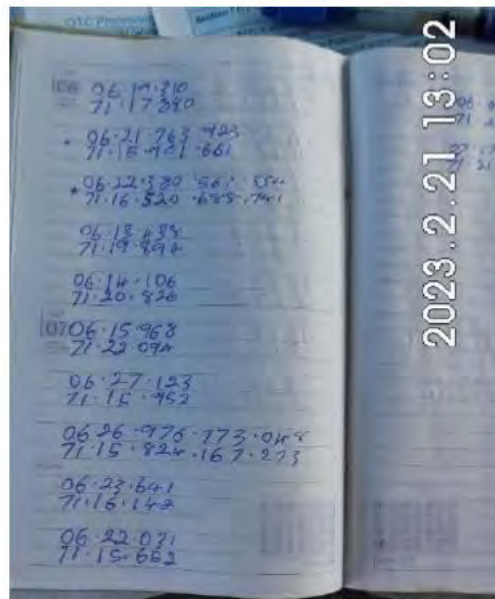 OTC
Section
06
06.19.310
71.17.380
• 06.21.763.923
71.15.921.661
• 06.22.380.561.554
71.16.520.688.741
06.13.438
71.19.894
06.14.106
71.20.826
07
06.15.968
71.22.094
06.27.123
71.15.952
06.26.976.773.048
71.15.824.167.273
06.23.641
71.16.142
06.22.031
71.15.662
2023.2.21 13:02